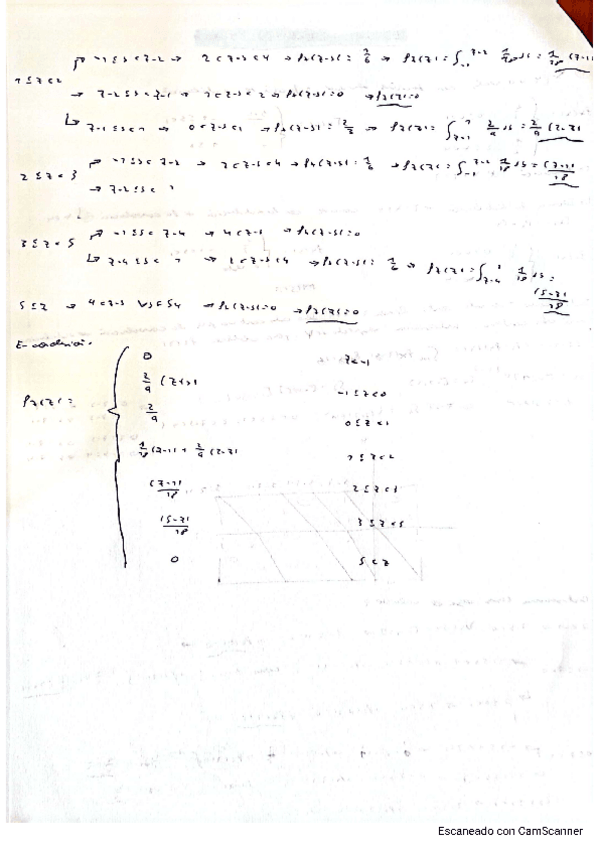 → -1 ≤ s < z-2 → 2 < z-s < 4 → f₂(z-s) = 1/6 → f_Z(z) = ∫₋₁^{z-2} 1/18 ds = 1/18 (z-1)
1 ≤ z < 2
→ z-2 ≤ s < z-1 → 1 < z-s < 2 → (z-s) = 0 → f_Z(z) = 0
↳ z-1 ≤ s < 1 → 0 < z-s < 1 → (z-s) = 2/3 → f_Z(z) = ∫_{z-1}^{1} 2/9 ds = 2/9 (2-z)
2 ≤ z < 3 → -1 ≤ s < z-2 → 2 < z-s < 4 → (z-s) = 1/6 → f_Z(z) = ∫₋₁^{z-2} 1/18 ds = (z-1)/18
→ z-2 ≤ s < 1
3 ≤ z < 5 → -1 ≤ s < z-4 → 4 < z-s → (z-s) = 0
↳ z-4 ≤ s < 1 → 2 < z-s < 4 → (z-s) = 1/6 → f_Z(z) = ∫_{z-4}^{1} 1/18 ds = (5-z)/18
5 ≤ z → 4 < z-s ∀s → (z-s) = 0 → f_Z(z) = 0
f_Z(z) =
0 z < -1
2/9 (z+1) -1 ≤ z < 0
2/9 0 ≤ z < 1
1/18 (z-1) + 2/9 (2-z) 1 ≤ z < 2
(z-1)/18 2 ≤ z < 3
(5-z)/18 3 ≤ z < 5
0 5 < z
Escaneado con CamScanner